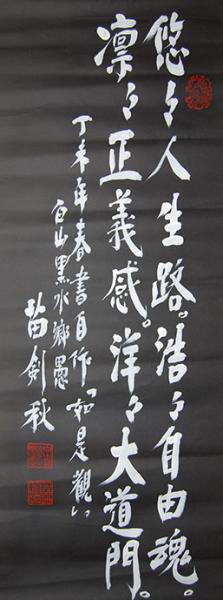 悠々人生路。浩々自由魂。
凛々正義感。洋々大道門。
丁未年春書自作「如是觀」
白山黑水鄉愚
苗剣秋